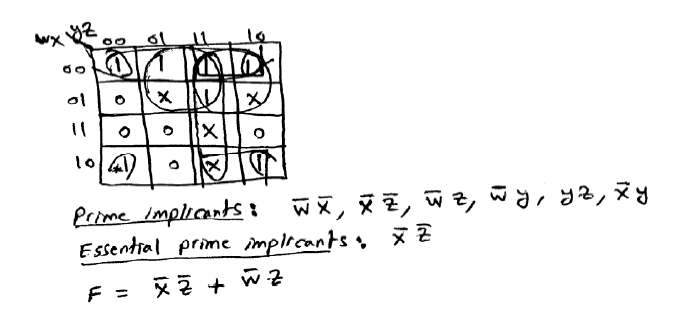 wx yz 00 01 11 10
00 1 1 1 1
01 0 x 1 x
11 0 0 x 0
10 1 0 x 1
Prime implicants: w̅ x̅, x̅ z̅, w̅ z, w̅ y, yz, x̅ y
Essential prime implicants: x̅ z̅
F = x̅ z̅ + w̅ z